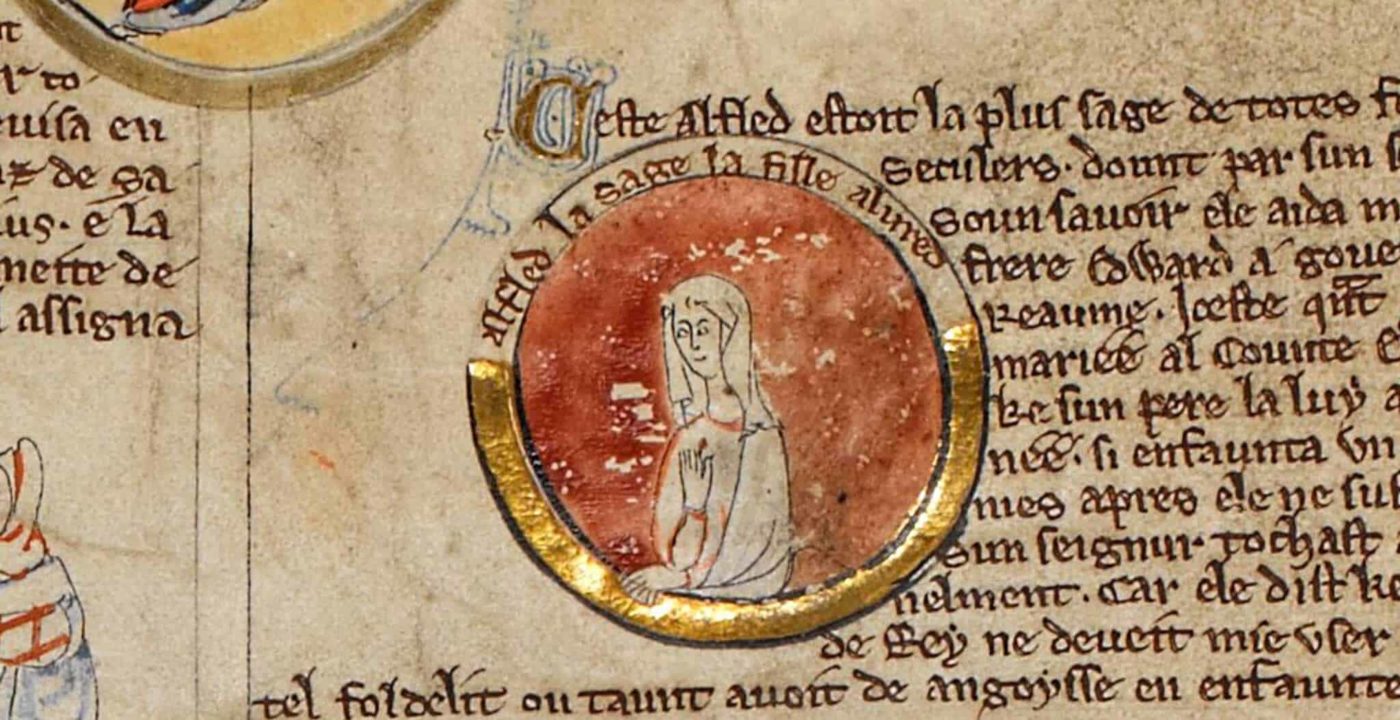 r to
euisa en
de sa
ius. e la
mette de
l assigna
Ceste Alfled estoit la plus sage de totes f
Seculers. dount par sun s
Soun sauoir ele aida m
frere Edward a goue
Reaume. Iceste qnt
mariee al Counte E
ke sun pere la luy a
nee. si enfaunta vn
mes apres ele ne su
Sun seignur tochast
nelment. Car ele dist k
de Rey ne deueit mie vser
tel fol delit ou taunt auoit de angoysse en enfaunta
Alfled la sage la fille alured